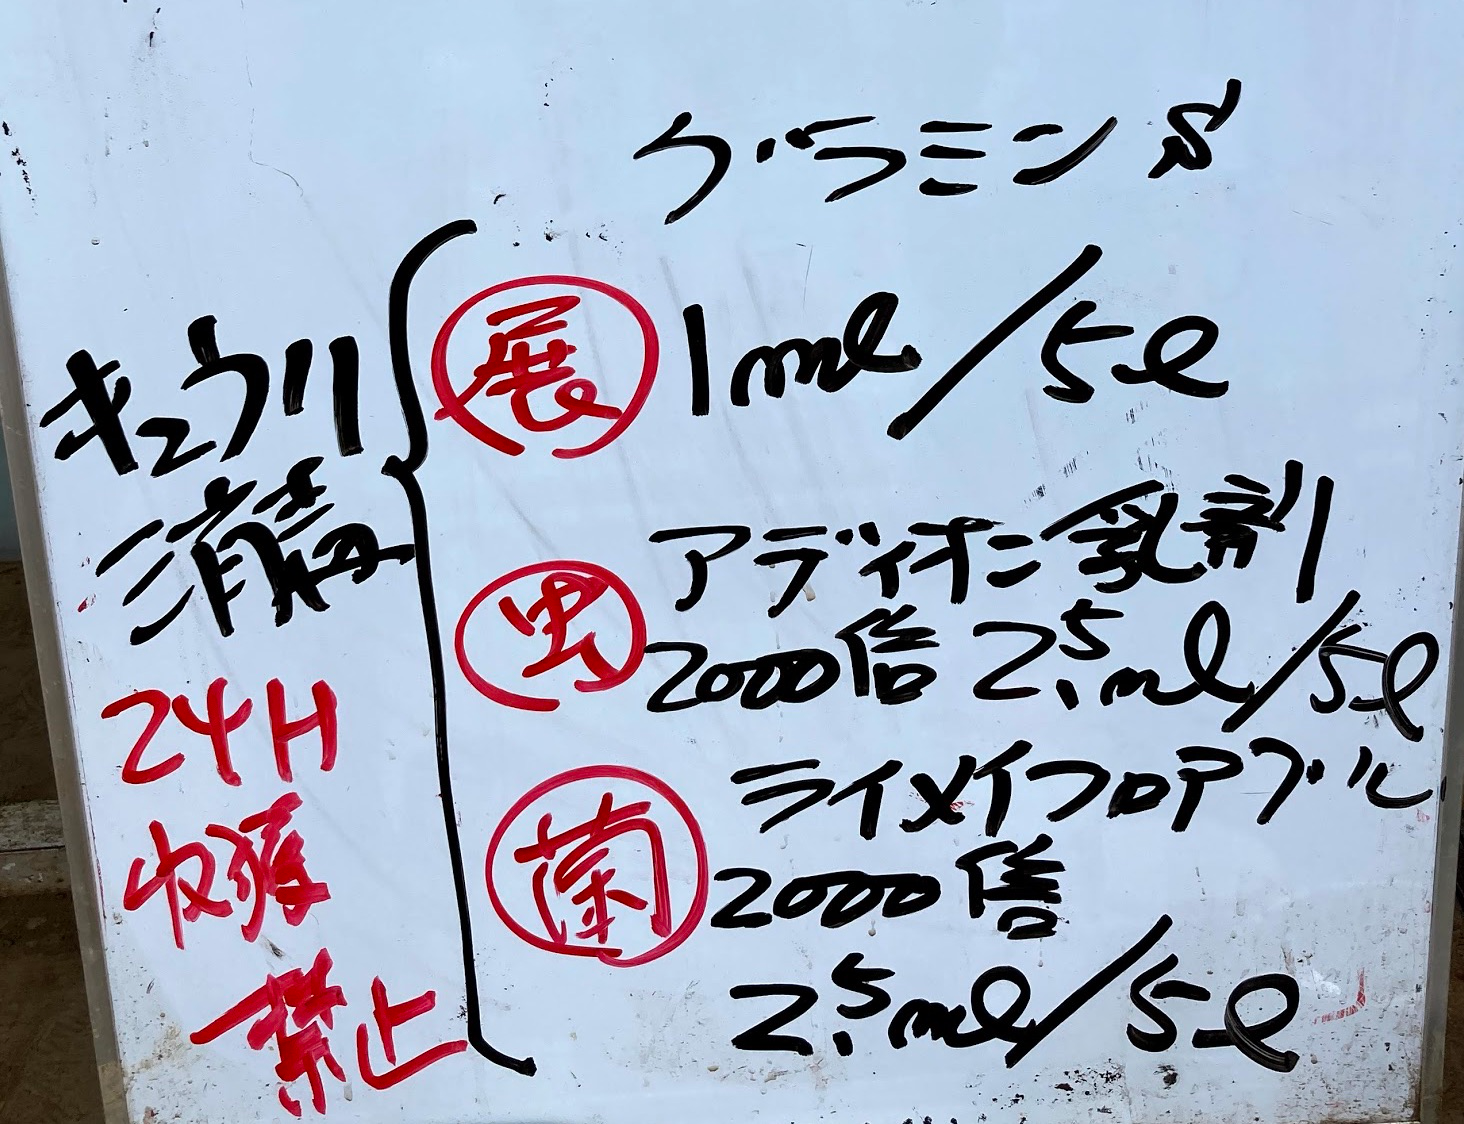 キュウリ
消毒
24H
収穫
禁止
グラミンS
展 1ml/5l
虫 アディオン乳剤
2000倍 2.5ml/5l
菌 ライメイフロアブル
2000倍
2.5ml/5l